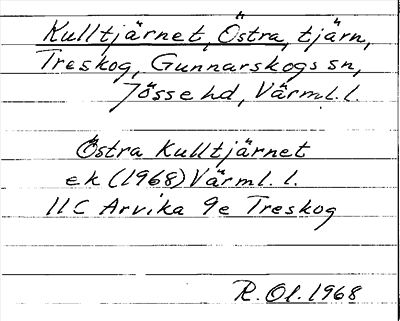 Kulltjärnet, Östra, tjärn,
Treskog, Gunnarskogs sn,
Jösse hd, Värml. l.
Östra Kulltjärnet
ek (1968) Värml. l.
11C Arvika 9e Treskog
R. Ol. 1968